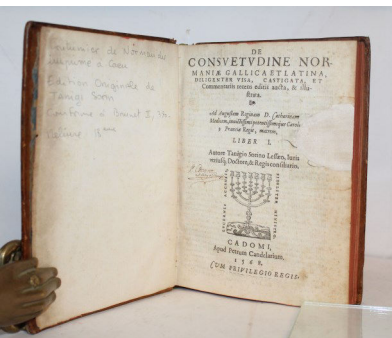 Coutumier de Normandie
imprimé à Caen
Edition Originale de
Taneguy Sorin
Conforme à Brunet I, 36
Reliure
DE
CONSVETVDINE NOR-
MANIÆ GALLICA ET LATINA,
DILIGENTER VISA, CASTIGATA, ET
Commentariis recens editis aucta, & illu-
strata.
Ad Augustam Reginam D. Catharinam
Mediceam, Regis, matrem,
LIBER I.
Autore Tanigio Sorino Lessæo, Iuris
vtriusq; Doctore, & Regio consiliario.
CADOMI,
Apud Petrum Candelarium.
1568.
CVM PRIVILEGIO REGIS.